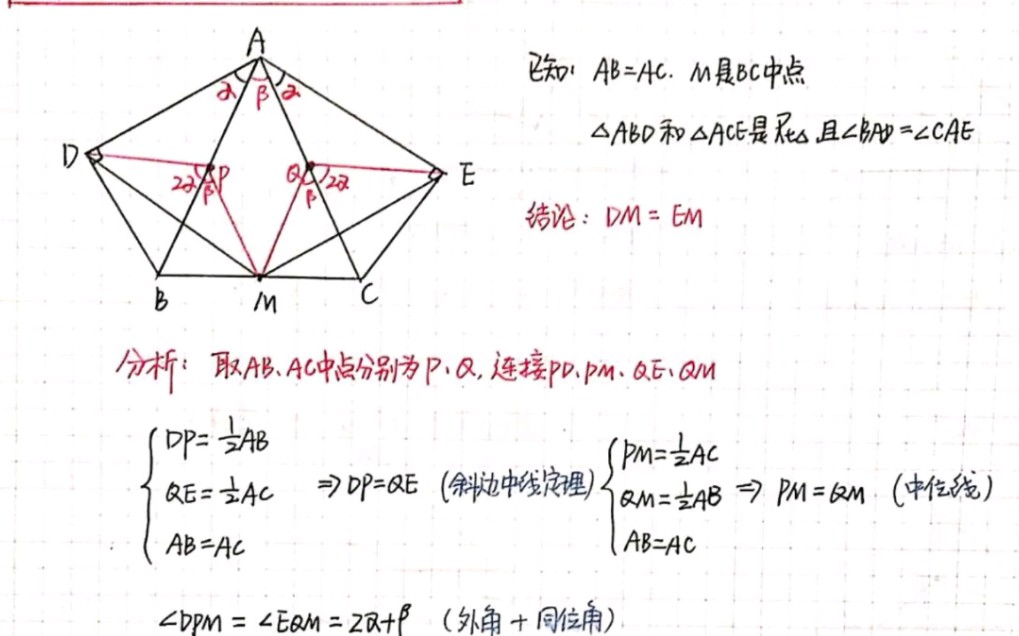 A
α β α
D
E
2α β P
Q β 2α
B M C
已知: AB=AC. M是BC中点
△ABD和△ACE是Rt△ 且∠BAD=∠CAE
结论: DM = EM
分析: 取AB、AC中点分别为P、Q, 连接PD、PM、QE、QM
DP=½AB
QE=½AC ⇒DP=QE (斜边中线定理)
AB=AC
PM=½AC
QM=½AB ⇒ PM=QM (中位线)
AB=AC
∠DPM = ∠EQM = 2α+β (外角 + 同位角)